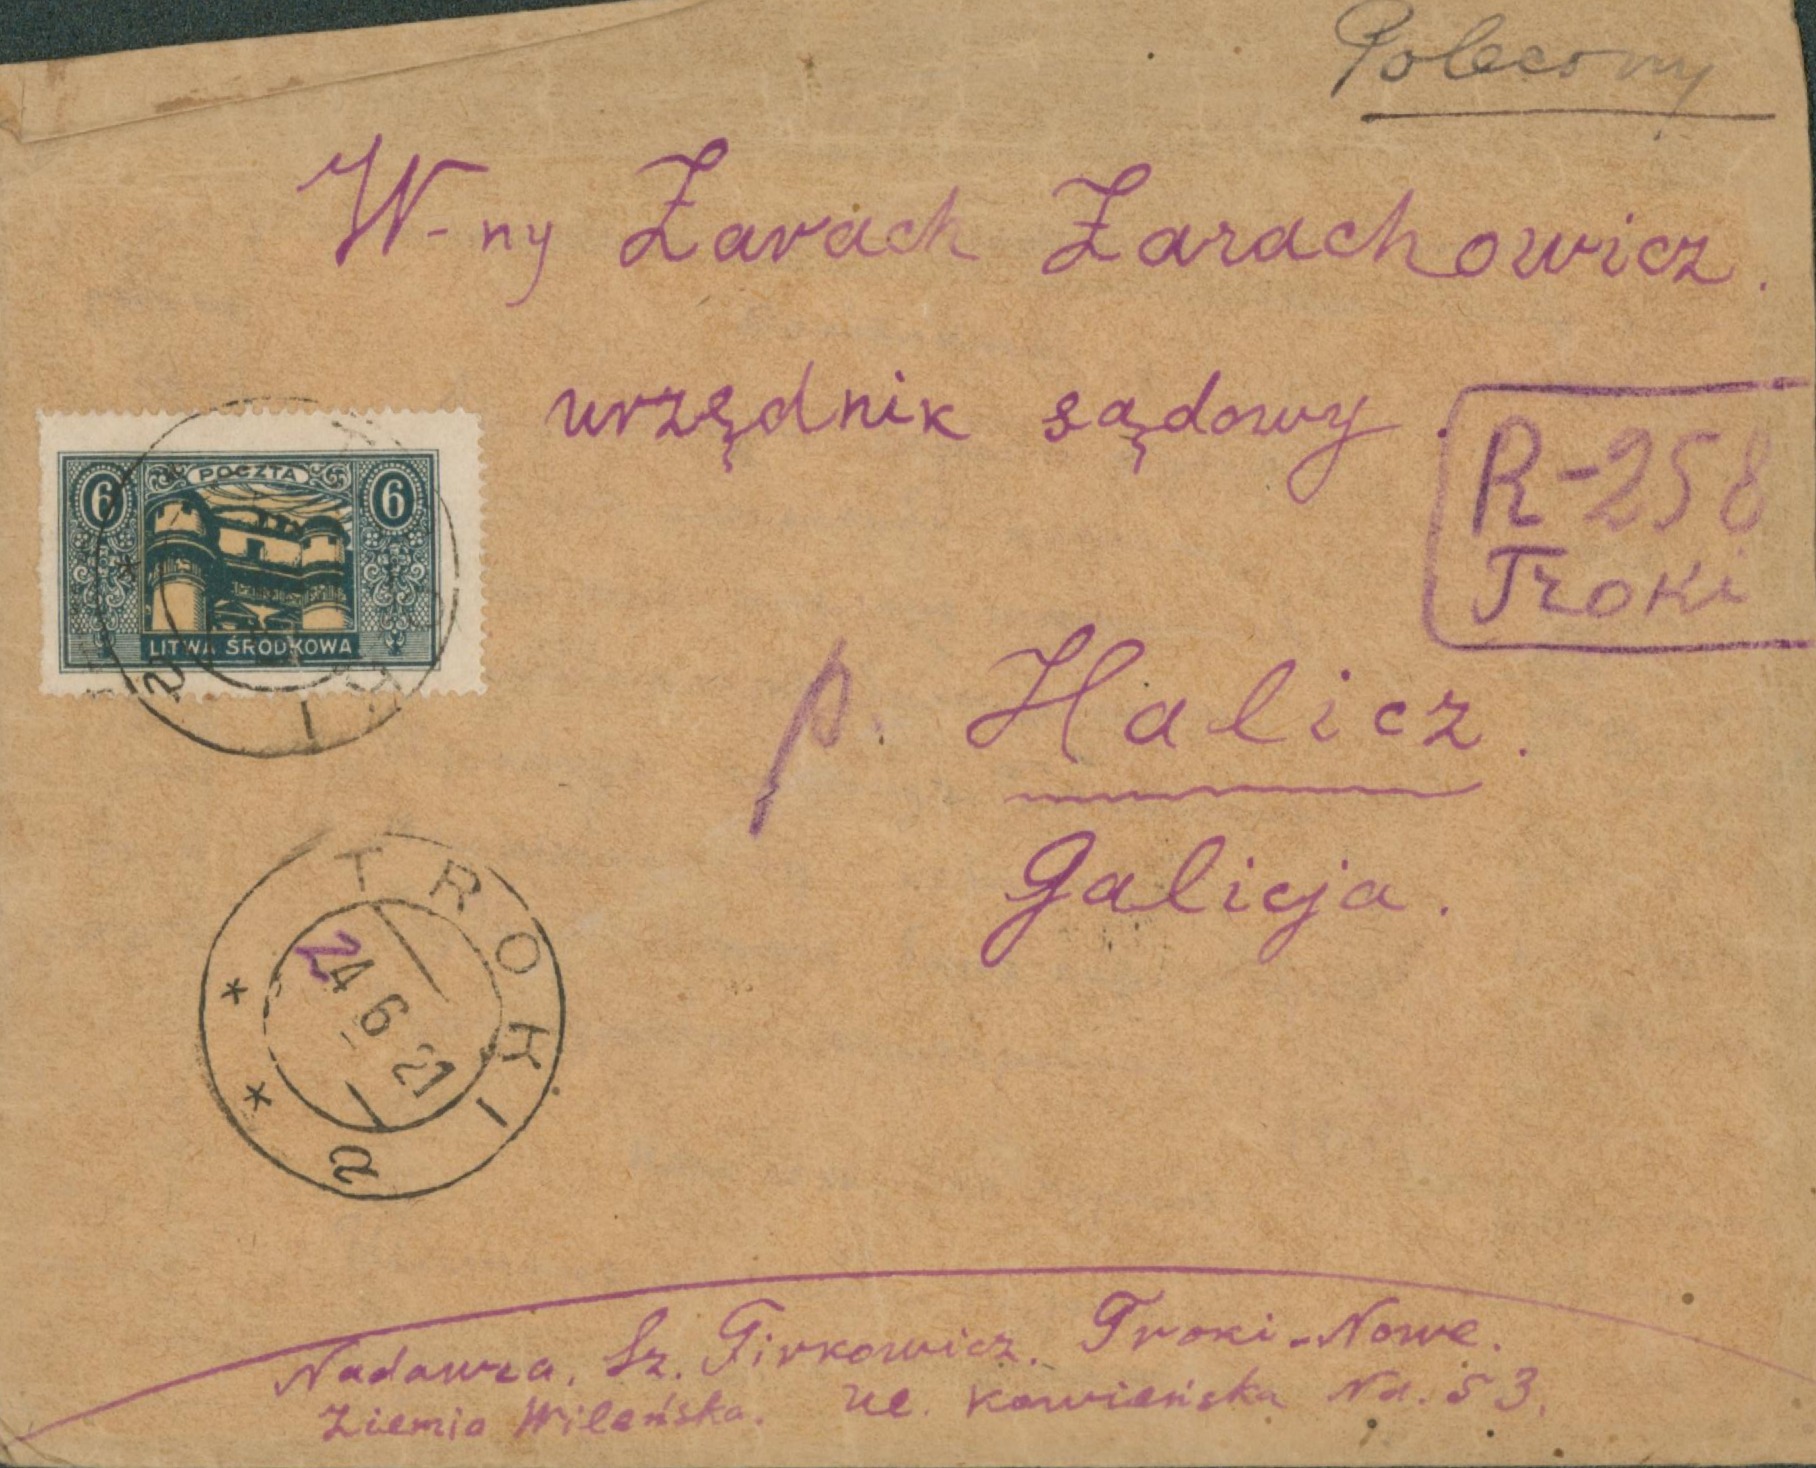 Polecony
W-ny Zarach Zarachowicz.
urzędnik sądowy.
R-258
Troki
6 POCZTA 6
LITWA ŚRODKOWA
p. Halicz.
Galicja.
TROKI
24 6 21
a
Nadawca, Sz. Firkowicz. Troki-Nowe.
Ziemia Wileńska. ul. Kowieńska Nd. 53.